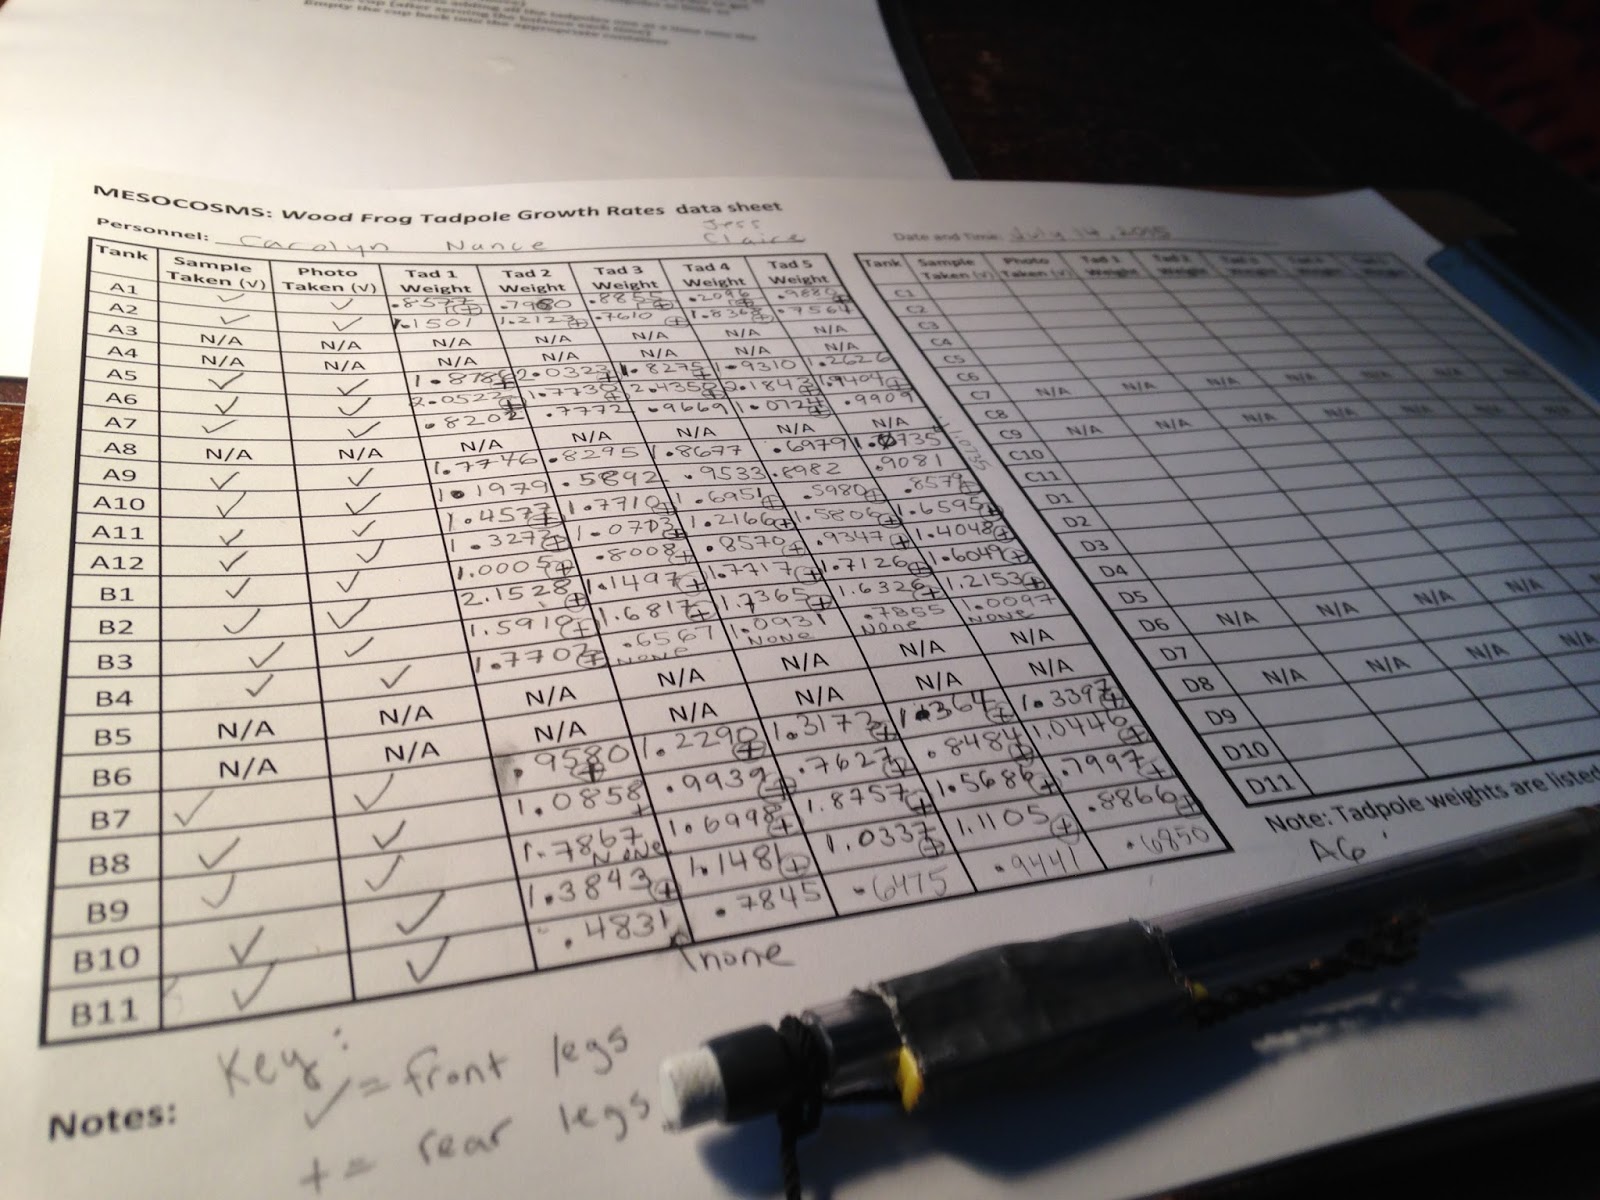 cup (after zeroing the balance each time)
Empty the cup back into the appropriate container
MESOCOSMS: Wood Frog Tadpole Growth Rates data sheet
Jess
Personnel: Carolyn Nance Claire
Date and Time: July 14, 2015
Tank Sample Taken (√) Photo Taken (√) Tad 1 Weight Tad 2 Weight Tad 3 Weight Tad 4 Weight Tad 5 Weight
A1 ✓ ✓ .8577 + .7980 .8855 + .2096 + .9886 +
A2 ✓ ✓ 1.1501 1.2123 + .7610 + 1.8368 + .7564
A3 N/A N/A N/A N/A N/A N/A N/A
A4 N/A N/A N/A N/A N/A N/A N/A
A5 ✓ ✓ 1.8786 + 2.0323 + 1.8275 + 1.9310 1.2626
A6 ✓ ✓ 2.0522 + 1.7730 + 2.4358 + 2.1843 + 1.9404 +
A7 ✓ ✓ .8202 .7772 .9669 1.0724 + .9909
A8 N/A N/A N/A N/A N/A N/A N/A
A9 ✓ ✓ 1.7746 .8295 1.8677 .6979 1.0735 1.0735
A10 ✓ ✓ 1.1979 .5892 .9533 .8982 .9081
A11 ✓ ✓ 1.4577 + 1.7710 + 1.6951 + .5980 + .8579 +
A12 ✓ ✓ 1.3273 + 1.0713 + 1.2166 + 1.5806 + 1.6595 +
B1 ✓ ✓ 1.0005 + .8008 + .8570 + .9347 + 1.4048 +
B2 ✓ ✓ 2.1528 + 1.1497 + 1.7717 + 1.7126 + 1.6049 +
B3 ✓ ✓ 1.5910 + 1.6817 + 1.7365 + 1.6326 + 1.2153 +
B4 ✓ ✓ 1.7702 + .6567 NONE 1.0931 NONE .7855 None 1.0097 NONE
B5 N/A N/A N/A N/A N/A N/A N/A
B6 N/A N/A N/A N/A N/A N/A N/A
B7 ✓ ✓ .9580 + 1.2290 + 1.3173 + 1.364 + 1.3397 +
B8 ✓ ✓ 1.0858 + .9939 + .7627 + .8484 + 1.0446 +
B9 ✓ ✓ 1.7867 None 1.6998 + 1.8757 + 1.5686 + .7997 +
B10 ✓ ✓ 1.3843 + 1.1481 + 1.0337 + 1.1105 + .8866 +
B11 ✓ ✓ .4831 .7845 .6475 .9441 .6850
none
Tank Sample Taken (√) Photo Taken (√) Tad 1 Weight
C1
C2
C3
C4
C5
C6
C7 N/A N/A N/A N/A N/A N/A N/A
C8
C9 N/A N/A N/A N/A N/A N/A N/A
C10
C11
D1
D2
D3
D4
D5
D6 N/A N/A N/A N/A
D7
D8 N/A N/A N/A N/A
D9
D10
D11
Note: Tadpole weights are listed
A6
Notes:
Key:
✓ = front legs
+ = rear legs